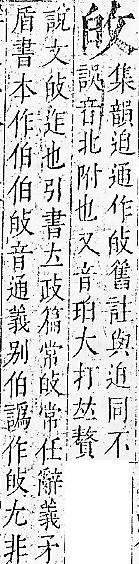 敀
集韻迫通作敀舊註與迫同不
誤音北附也又音珀大打𠀤贅
說文敀迮也引書立政篇常敀常任辭義矛
盾書本作伯伯敀音通義別伯譌作敀尤非